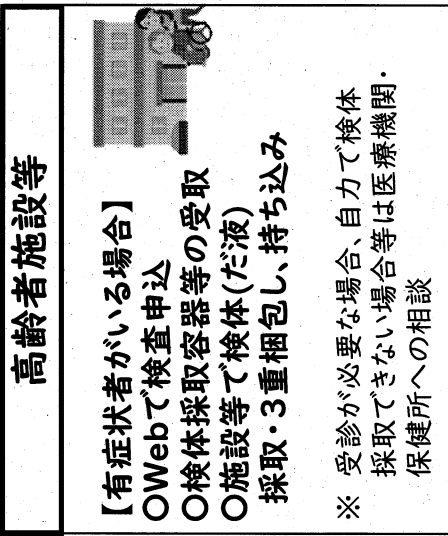 高齢者施設等
【有症状者がいる場合】
○Webで検査申込
○検体採取容器等の受取
○施設等で検体(だ液)
採取・3重梱包し、持ち込み
※ 受診が必要な場合、自力で検体
採取できない場合等は医療機関・
保健所への相談